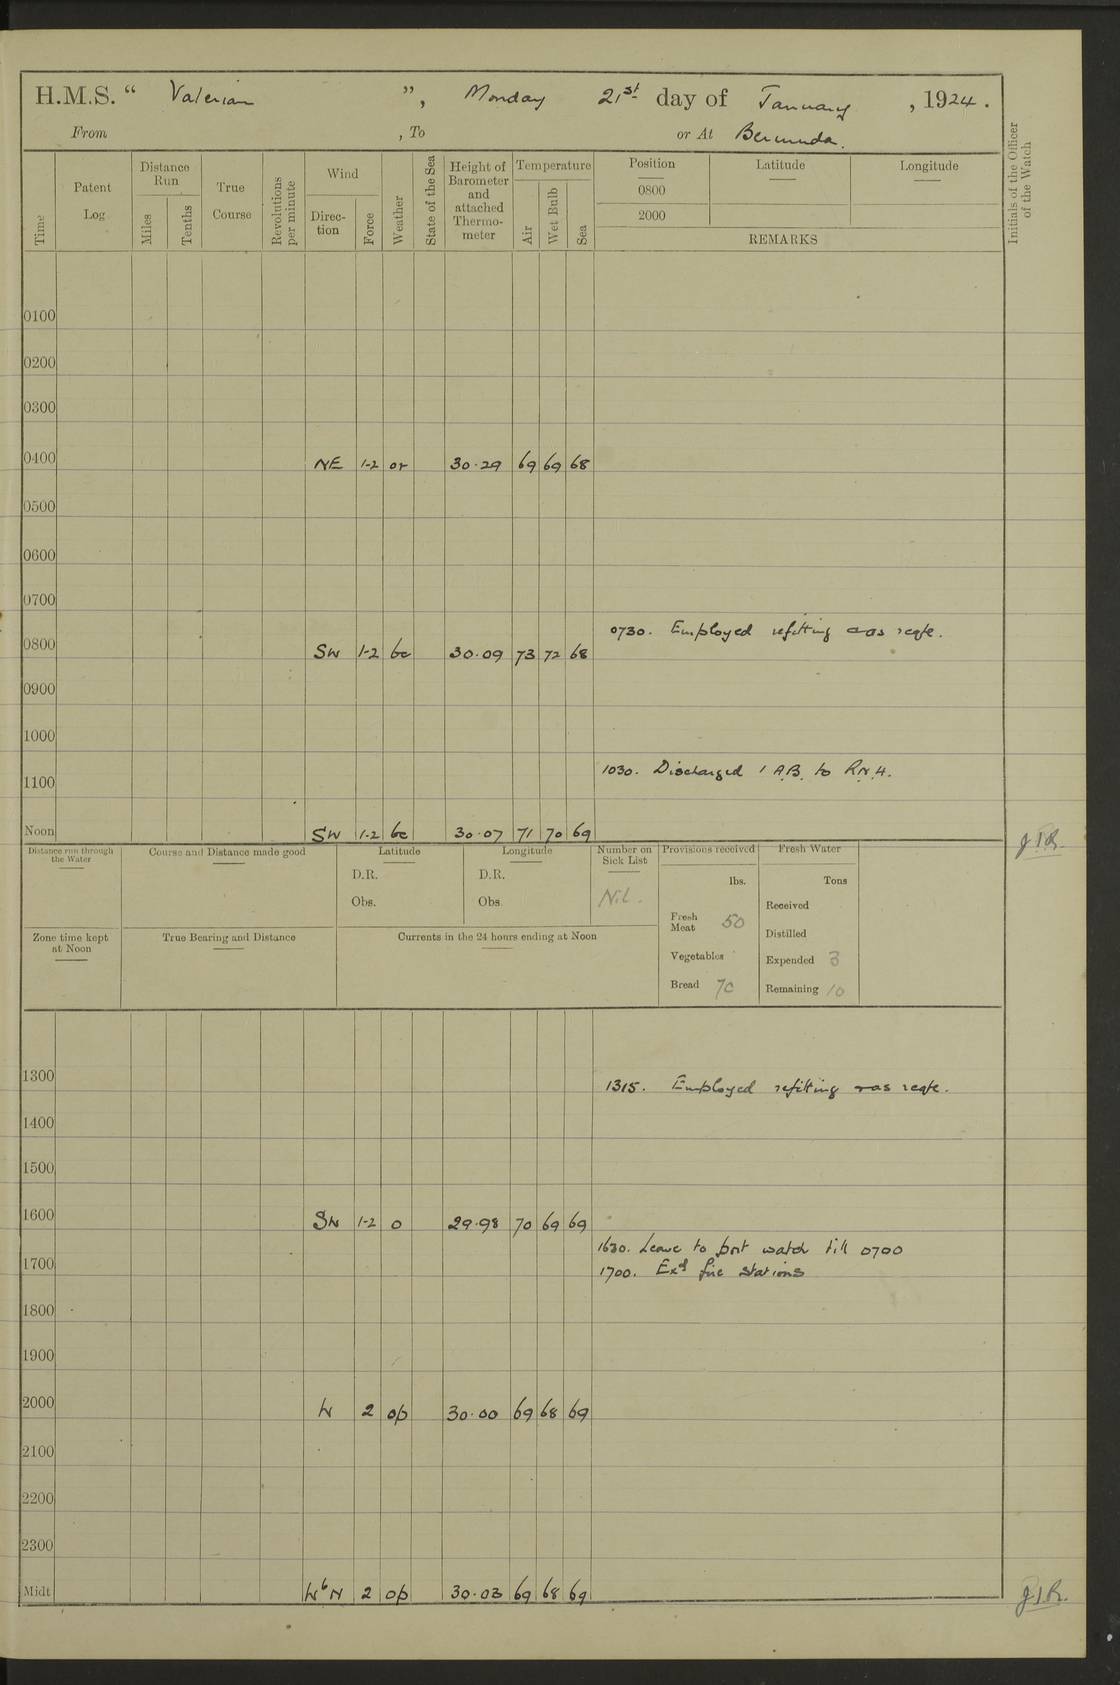 H.M.S. “ Valerian ”, Monday 21st day of January, 1924.
From , To or At Bermuda.
Time
Patent Log
Distance Run
Miles
Tenths
True Course
Revolutions per minute
Wind
Direc-tion
Force
Weather
State of the Sea
Height of Barometer and attached Thermo-meter
Temperature
Air
Wet Bulb
Sea
Position Latitude Longitude
0800
2000
REMARKS
Initials of the Officer of the Watch
0100
0200
0300
0400 NE 1-2 or 30·29 69 69 68
0500
0600
0700
0730. Employed refitting as reqte.
0800 SW 1-2 bc 30·09 73 72 68
0900
1000
1030. Discharged 1 A.B. to R.N.H.
1100
Noon SW 1-2 bc 30·07 71 70 69
Distance run through the Water
Course and Distance made good
Latitude
D.R.
Obs.
Longitude
D.R.
Obs.
Number on Sick List
Nil.
Provisions received
lbs.
Fresh Meat 50
Vegetables
Bread 70
Fresh Water
Tons
Received
Distilled
Expended 3
Remaining 10
Zone time kept at Noon
True Bearing and Distance
Currents in the 24 hours ending at Noon
1300
1315. Employed refitting as reqte.
1400
1500
1600 SW 1-2 o 29·98 70 69 69
1630. Leave to port watch till 0700
1700
1700. Exd fire stations
1800
1900
2000 W 2 op 30·00 69 68 69
2100
2200
2300
Midt WbN 2 op 30·03 69 68 69